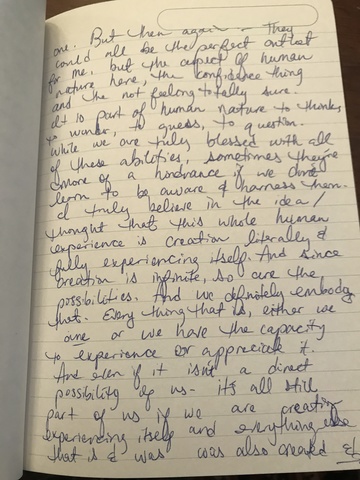 one. But then again - They
could all be the perfect outlet
for me, but the aspect of human
nature here, the confidence thing
and the not feeling totally sure.
It is part of human nature to think,
to wonder, to guess, to question.
While we are truly blessed with all
of these abilities, sometimes they're
more of a hindrance if we don't
learn to be aware & harness them.
I truly believe in the idea/
thought that this whole human
experience is creation literally &
fully experiencing itself. And since
creation is infinite, so are the
possibilities. And we definitely embody
that. Every thing that is, either we
are or we have the capacity
to experience or appreciate it.
And even if it isn't a direct
possibility of us - it's all still
part of us if we are creation
experiencing itself and everything else
that is & was was also created